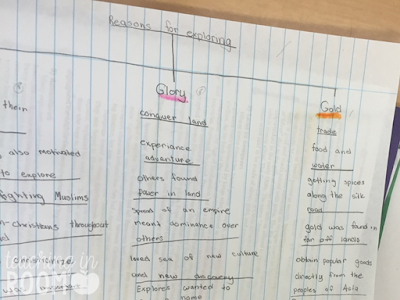 Reasons for exploring
their
also motivated
to explore
fighting Muslims
Christians throughout
Glory
conquer land
experiance
adventure
others found
power in land
spread of an empire
meant dominance over
others
loved sea of new culture
and new discovery
Explores wanted to
name
Gold
trade
food and
water
getting spices
along the silk
road
gold was found in
far off lands
obtain popular goods
directly from the
peoples of Asia
ROOM